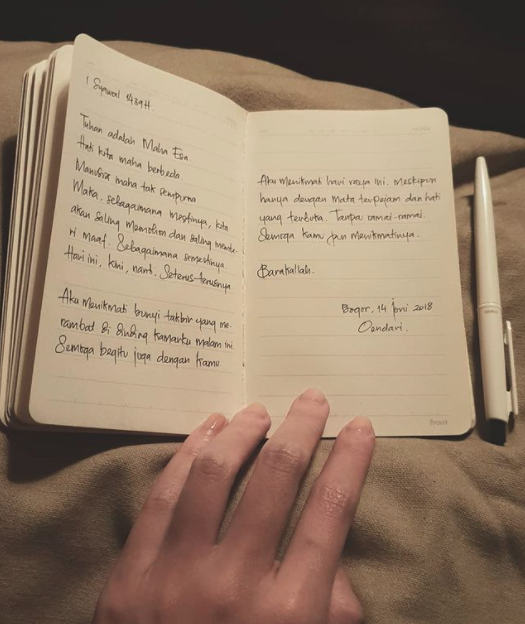 1 Syawal 1439 H
Tuhan adalah Maha Esa
Hati kita maha berbeda
Manusia maha tak sempurna
Maka, sebagaimana mestinya, kita
akan saling memohon dan saling membe-
ri maaf. Sebagaimana semestinya.
Hari ini, kini, nanti. Seterus-terusnya
Aku menikmati bunyi takbir yang me-
rambat di dinding kamarku malam ini.
Semoga begitu juga dengan kamu.
Aku menikmati hari raya ini. meskipun
hanya dengan mata terpejam dan hati
yang terbuka. Tanpa ramai-ramai.
Semoga kamu pun menikmatinya.
Barakallah.
Bogor, 14 Juni 2018